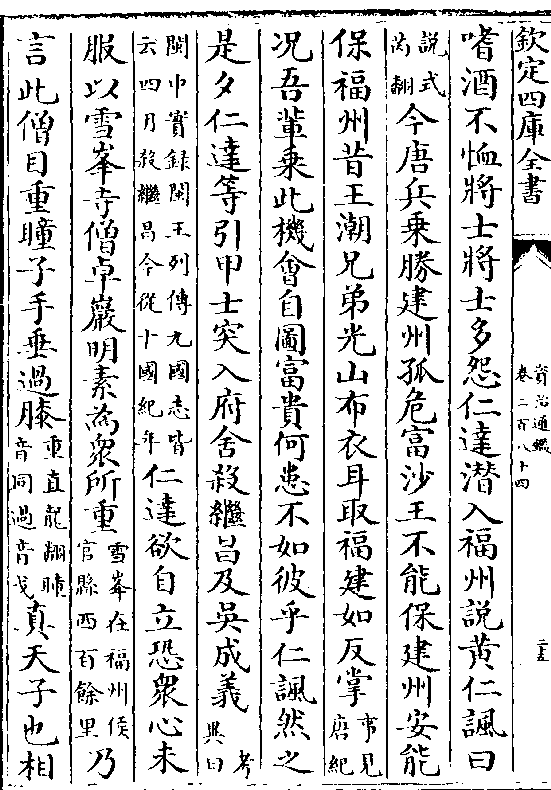 欽定四庫全書
資治通鑑
卷二百八十四
二五
嗜酒不恤將士將士多怨仁達潛入福州説黄仁諷曰
説式
芮翻
今唐兵乗勝建州孤危富沙王不能保建州安能
保福州昔王潮兄弟光山布衣耳取福建如反掌
事見
唐紀
况吾輩乗此機會自圖富貴何患不如彼乎仁諷然之
是夕仁達等引甲士突入府舍殺繼昌及吳成義
考
異曰
閩中實録閩王列傳九國志皆
云四月殺繼昌今從十國紀年
仁達欲自立恐衆心未
服以雪峯寺僧卓巖明素為衆所重
雪峯在福州侯
官縣西百餘里
乃
言此僧目重瞳子手垂過膝
重直龍翻瞳
音同過音戈
真天子也相